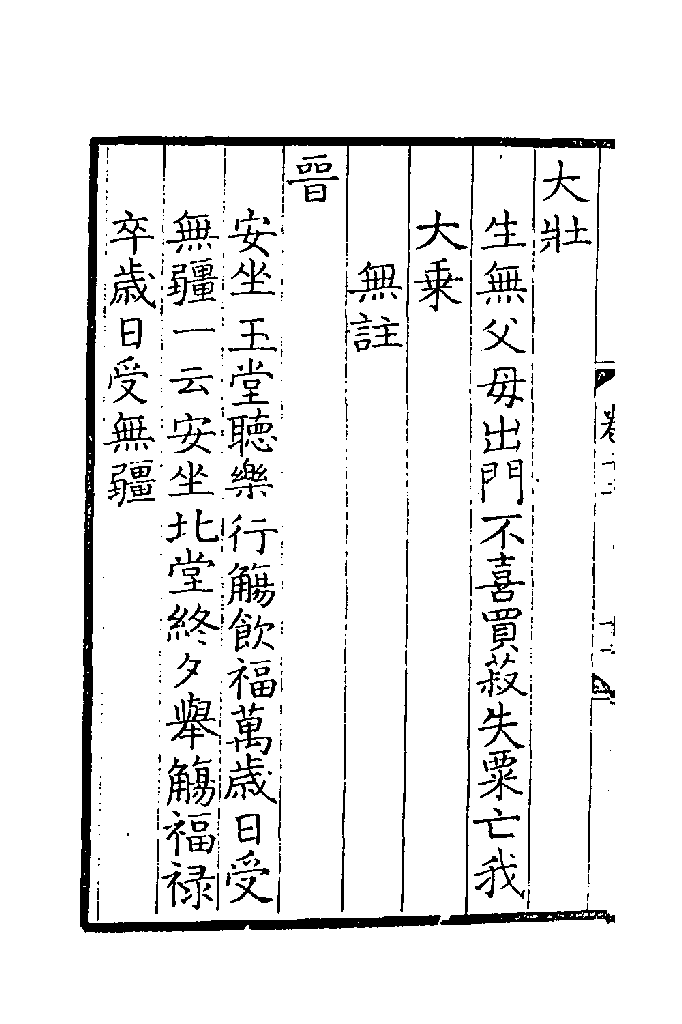 大壯
生無父母出門不喜買菽失粟亡我
大乗
無註
晉
安坐玉堂聽樂行觴飲福萬歳日受
無疆一云安坐北堂終夕舉觴福禄
卒歳日受無疆